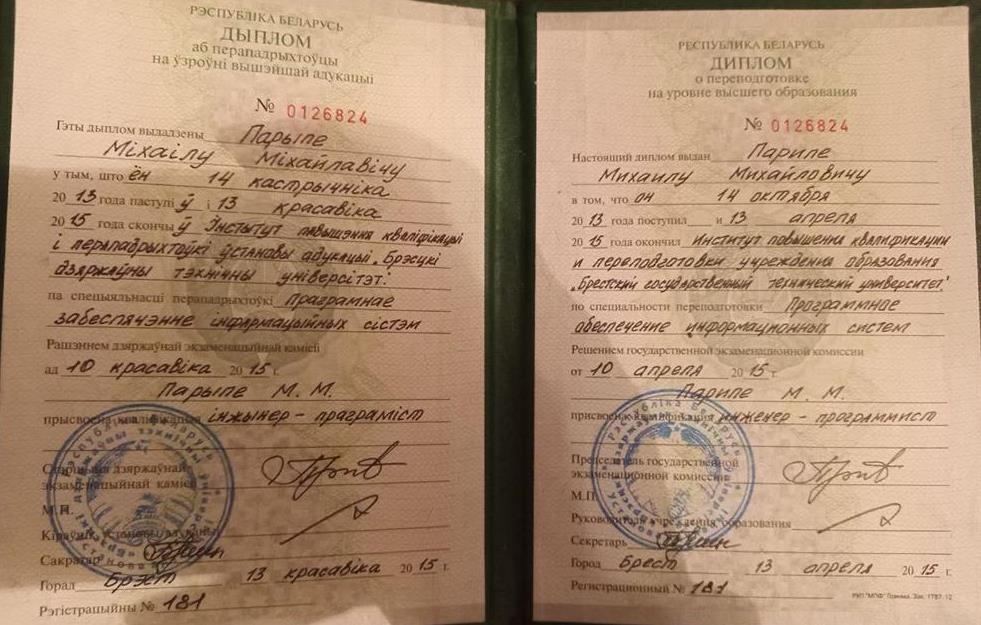 РЭСПУБЛІКА БЕЛАРУСЬ
ДЫПЛОМ
аб перападрыхтоўцы
на ўзроўні вышэйшай адукацыі
№ 0126824
Гэты дыплом выдадзены Парыпе
Міхаілу Міхайлавічу
у тым, што ён 14 кастрычніка
20 13 года паступі ў і 13 красавіка
20 15 года скончы ў Інстытут павышэння кваліфікацыі
і перападрыхтоўкі ўстановы адукацыі „Брэсцкі
дзяржаўны тэхнічны універсітэт".
па спецыяльнасці перападрыхтоўкі праграмнае
забеспячэнне інфармацыйных сістэм
Рашэннем дзяржаўнай экзаменацыйнай камісіі
ад 10 красавіка 20 15 г.
Парыпе М. М.
прысвоена кваліфікацыя інжынер - праграміст
Старшыня дзяржаўнай
экзаменацыйнай камісіі
М.П.
Кіраўнік установы адукацыі
Сакратар
Горад Брэст 13 красавіка 20 15 г.
Рэгістрацыйны № 181
РЕСПУБЛИКА БЕЛАРУСЬ
ДИПЛОМ
о переподготовке
на уровне высшего образования
№ 0126824
Настоящий диплом выдан Парипе
Михаилу Михайловичу
в том, что он 14 октября
20 13 года поступил и 13 апреля
20 15 года окончил Институт повышения квалификации
и переподготовки учреждения образования
„Брестский государственный технический университет"
по специальности переподготовки Программное
обеспечение информационных систем
Решением государственной экзаменационной комиссии
от 10 апреля 20 15 г.
Парипе М. М.
присвоена квалификация инженер - программист
Председатель государственной
экзаменационной комиссии
М.П.
Руководитель учреждения образования
Секретарь
Город Брест 13 апреля 20 15 г.
Регистрационный № 181